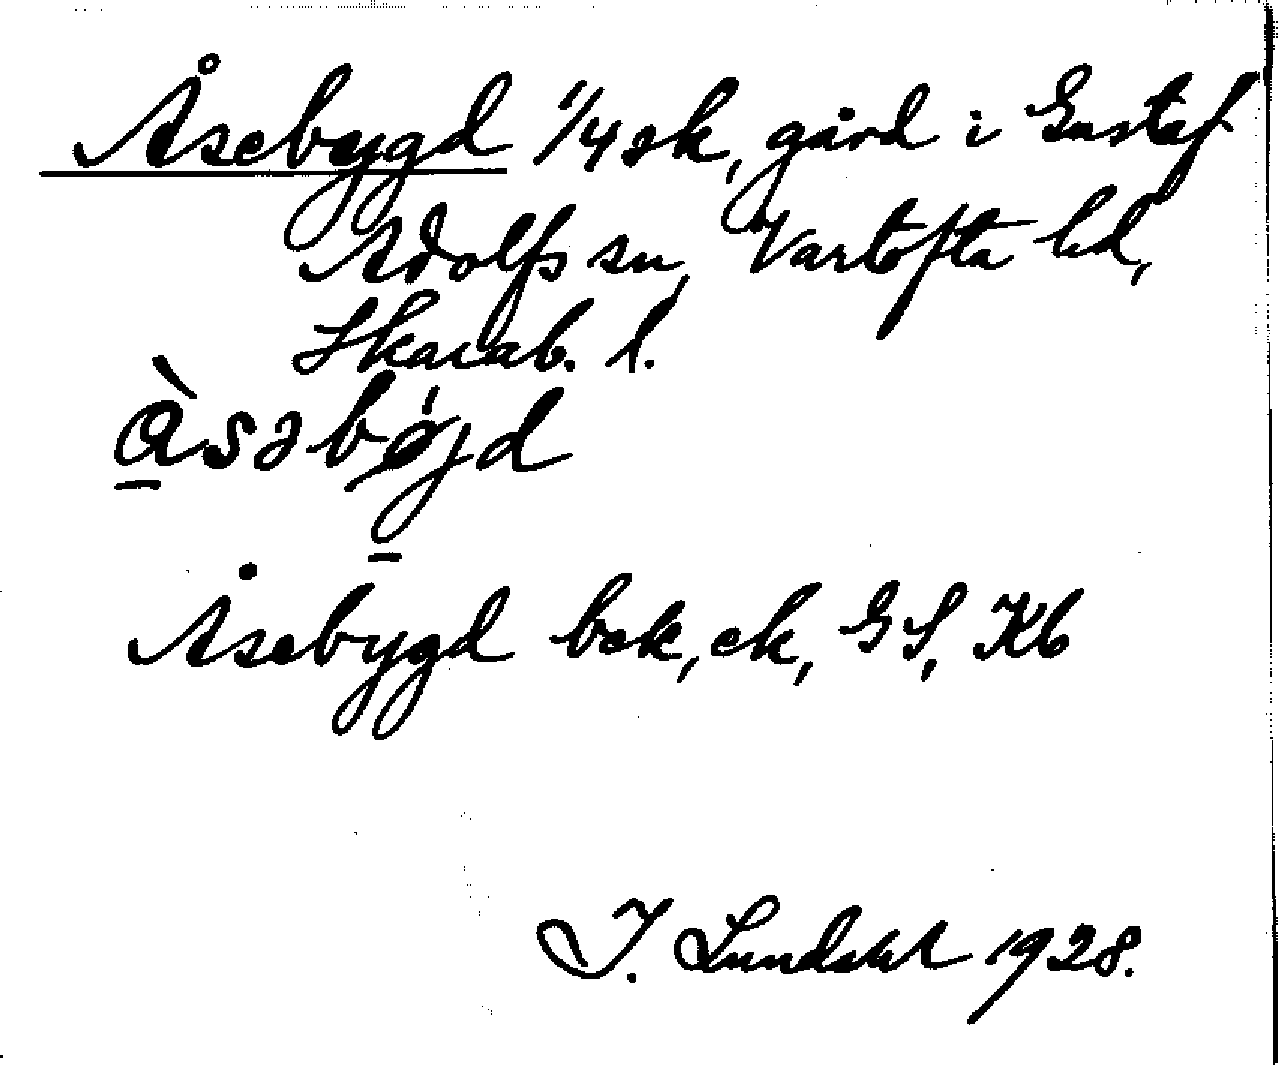 Åsebygd 1/4 sk, gård i Gustaf
Adolfs sn, Vartofta hd,
Skarab. l.
Åsebygd bek, ek, GS, Kb
J. 1928.